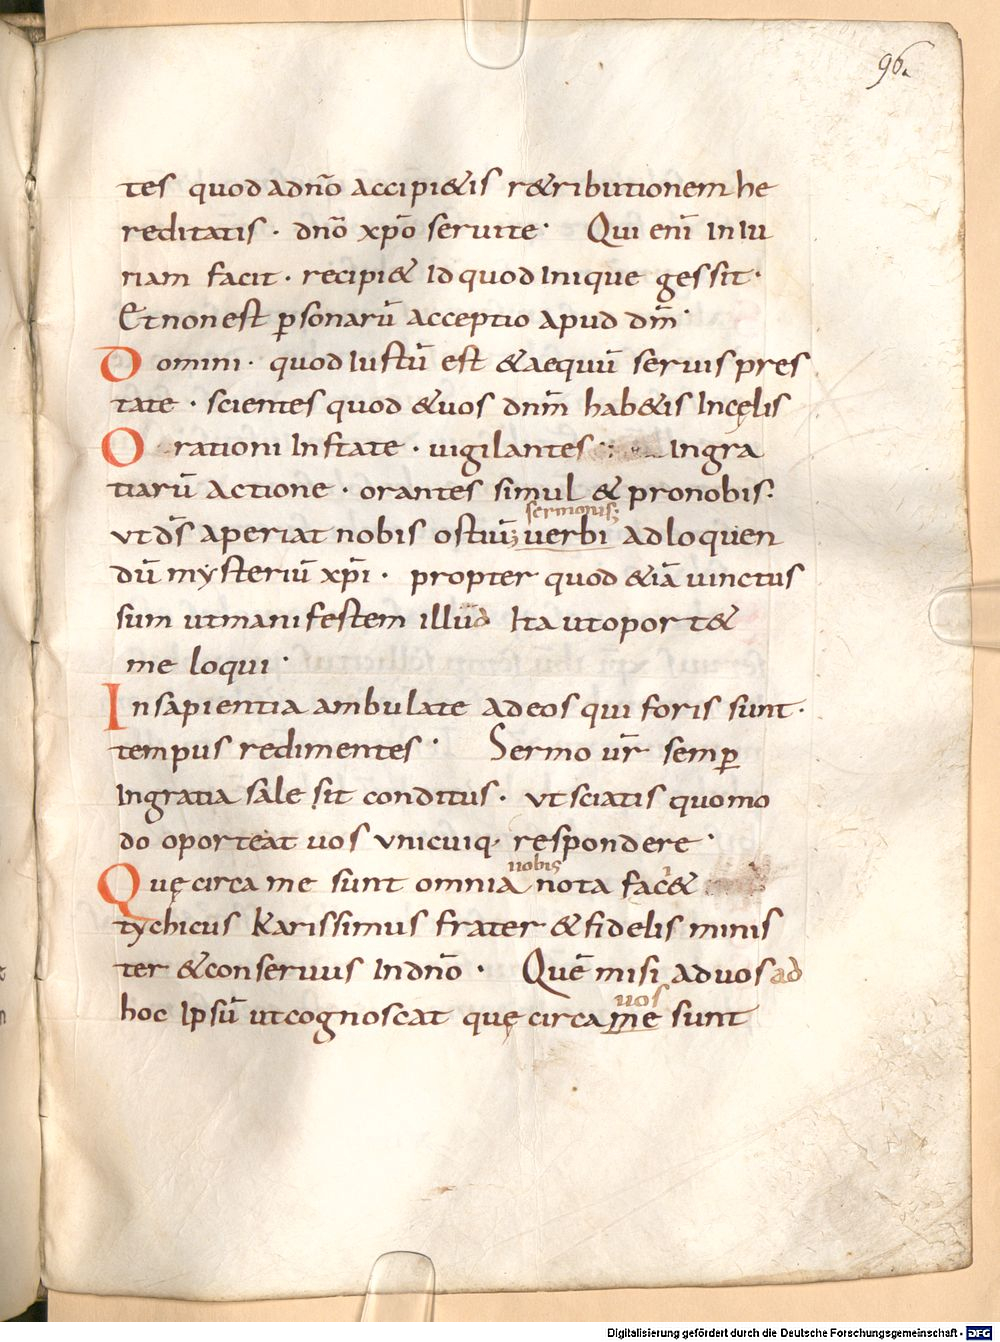 96.
tes quod adn̄o accipi&is r&ributionem he
reditatis · dn̄o xp̄o seruite · Qui enī iniu
riam facit · recipi& id quod inique gessit ·
Et non est ꝑsonarū acceptio apud dm̄ ·
Domini · quod iustū est &aequū seruis pres
tate · scientes quod &uos dnm̄ hab&is incęlis
Orationi instate · uigilantes Ingra
tiarū actione · orantes simul & pronobis :
sermonis
ut ds̄ aperiat nobis ostiū uerbi adloquen
dū mysteriū xp̄i · propter quod &iā uinctus
sum utmanifestem illud Ita utoport&
me loqui ·
Insapientia ambulate adeos qui foris sunt ·
tempus redimentes · Sermo ur̄ semꝑ
Ingratia sale sit conditus · ut sciatis quomo
do oporteat uos unicuiq· respondere ·
nobis
Quę circa me sunt omnia nota fac&
tychicus karissimus frater & fidelis minis
ter &conseruus Indn̄o · Quē misi aduos ad
uos
hoc ipsū utcognoscat quę circa me sunt
Digitalisierung gefördert durch die Deutsche Forschungsgemeinschaft - DFG